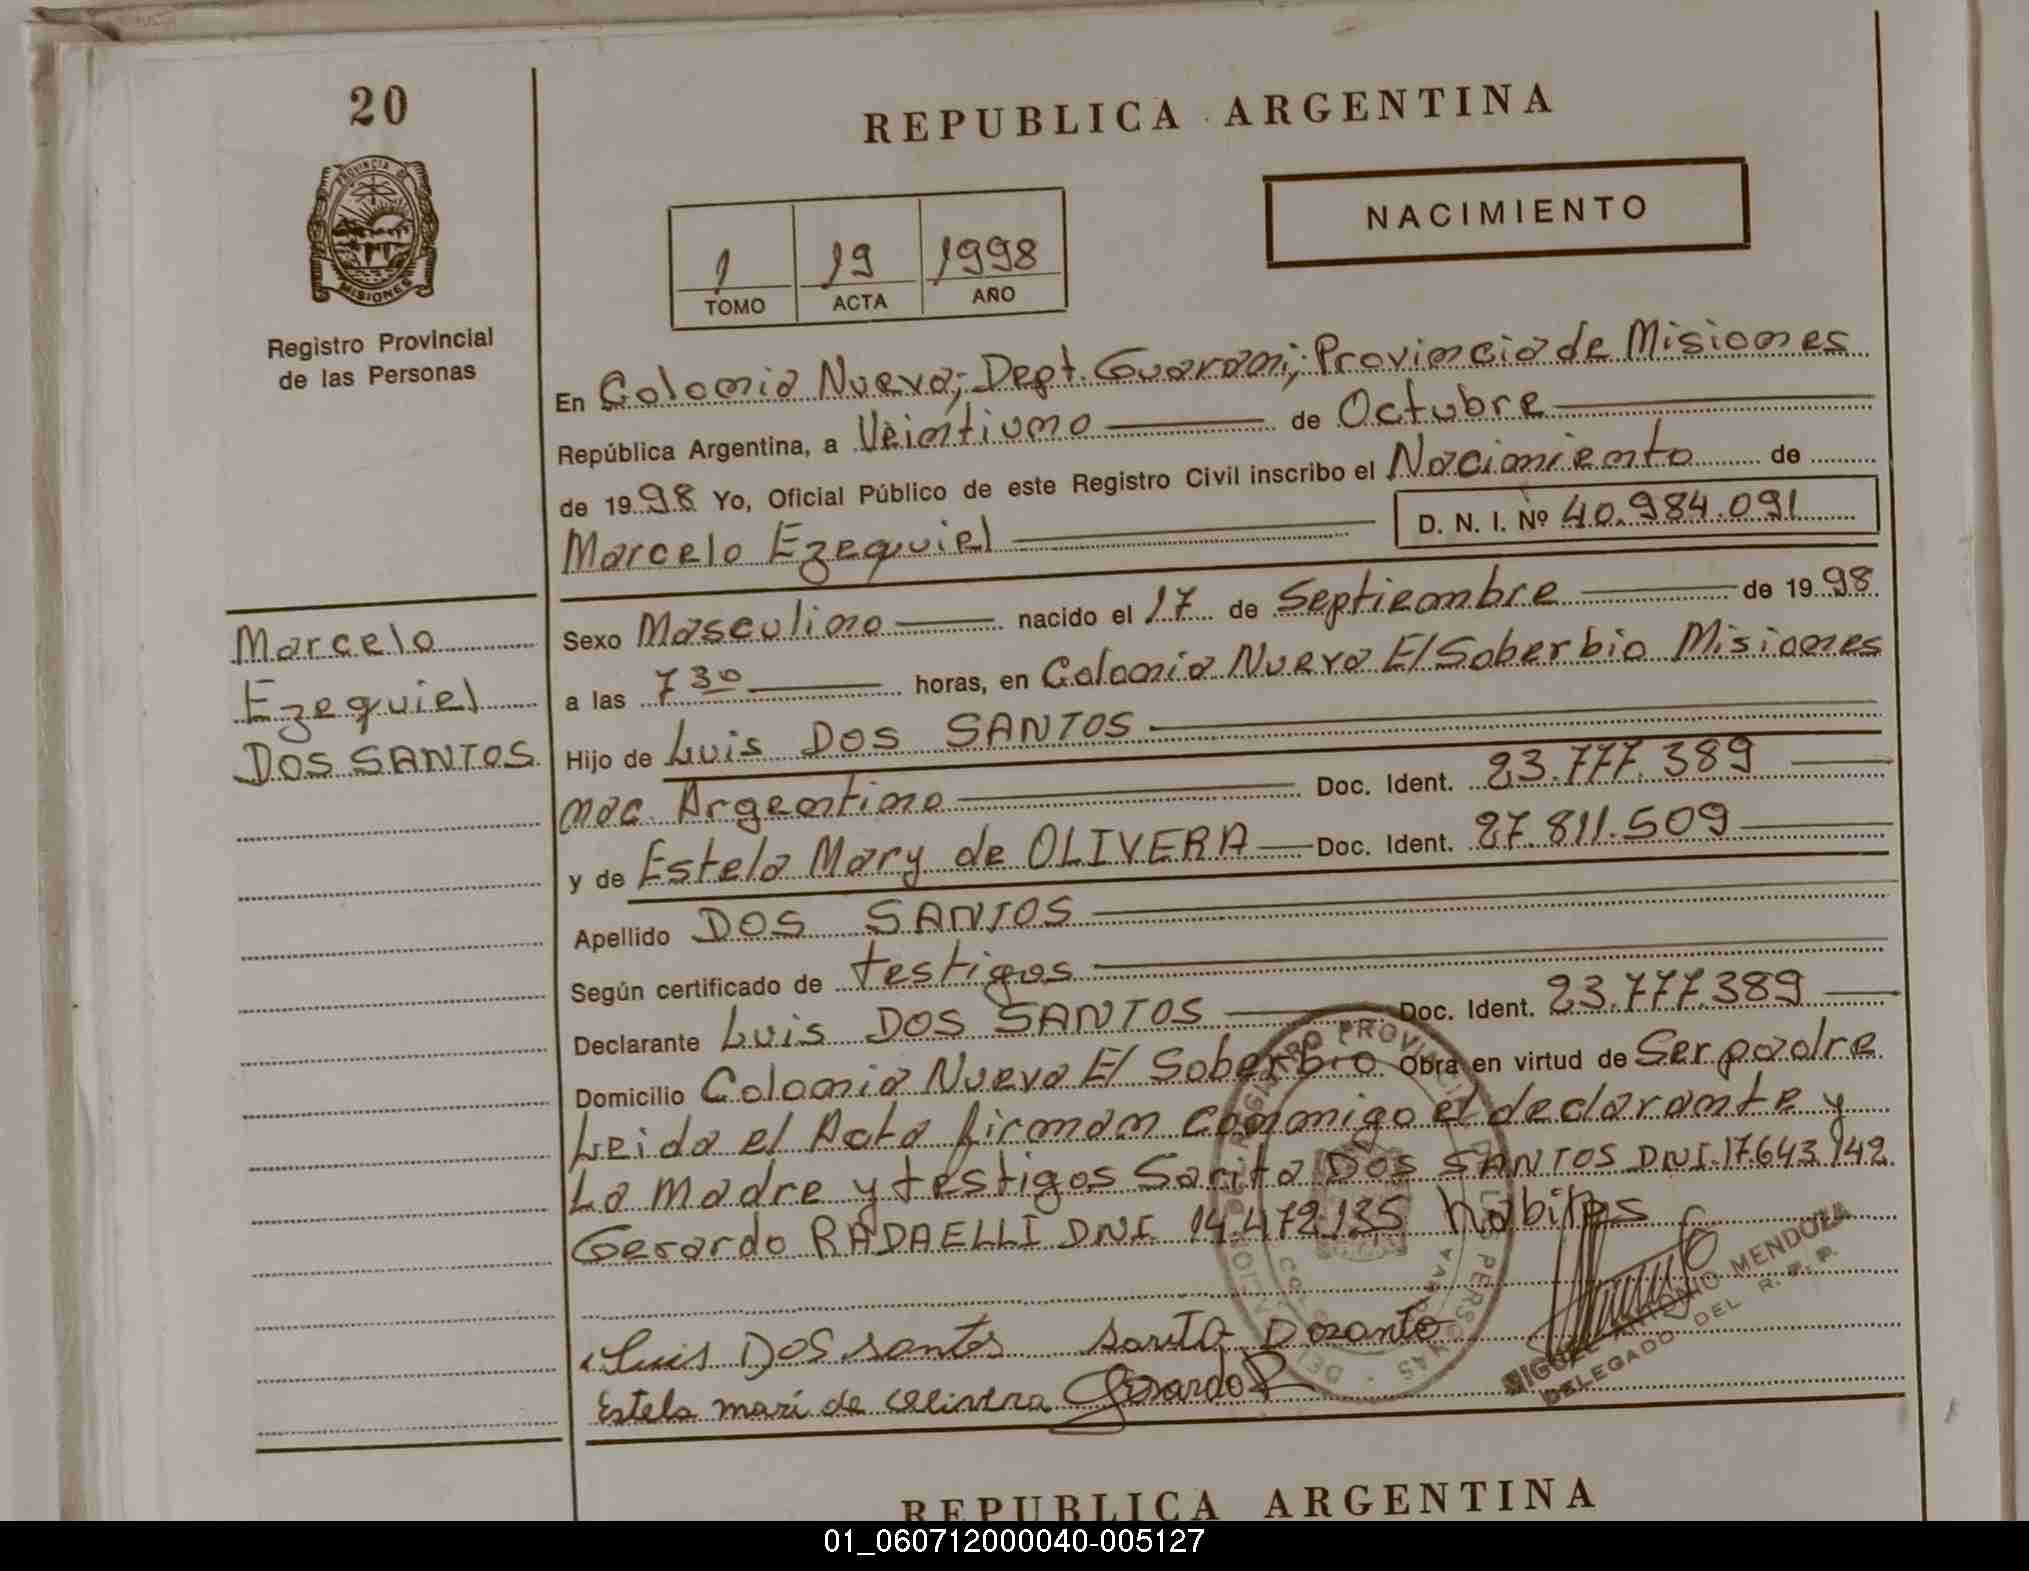 20
PROVINCIA DE
MISIONES
Registro Provincial
de las Personas
REPUBLICA ARGENTINA
NACIMIENTO
1 19 1998
TOMO ACTA AÑO
En Colonia Nueva; Dept. Guarani; Provincia de Misiones
República Argentina, a Veintiuno de Octubre
de 1998 Yo, Oficial Público de este Registro Civil inscribo el Nacimiento de
Marcelo Ezequiel D. N. I. Nº 40.984.091
Marcelo
Ezequiel
DOS SANTOS
Sexo Masculino nacido el 17 de Septiembre de 1998
a las 7 30 horas, en Colonia Nueva El Soberbio Misiones
Hijo de Luis DOS SANTOS
nac. Argentino Doc. Ident. 23.777.389
y de Estela Mary de OLIVERA Doc. Ident. 27.811.509
Apellido DOS SANTOS
Según certificado de testigos
Declarante Luis DOS SANTOS Doc. Ident. 23.777.389
Domicilio Colonia Nueva El Soberbio Obra en virtud de Ser padre
Leida el Acta firman conmigo el declarante y
La Madre y testigos Sarita DOS SANTOS DNI.17.643.142
Gerardo RADAELLI DNI. 14.472.135 habiles
Luis DOS santos
Estela mari de Gerardo R
ANTONIO MENDOZA
DELEGADO DEL R. P. P.
REPUBLICA ARGENTINA
01_060712000040-005127